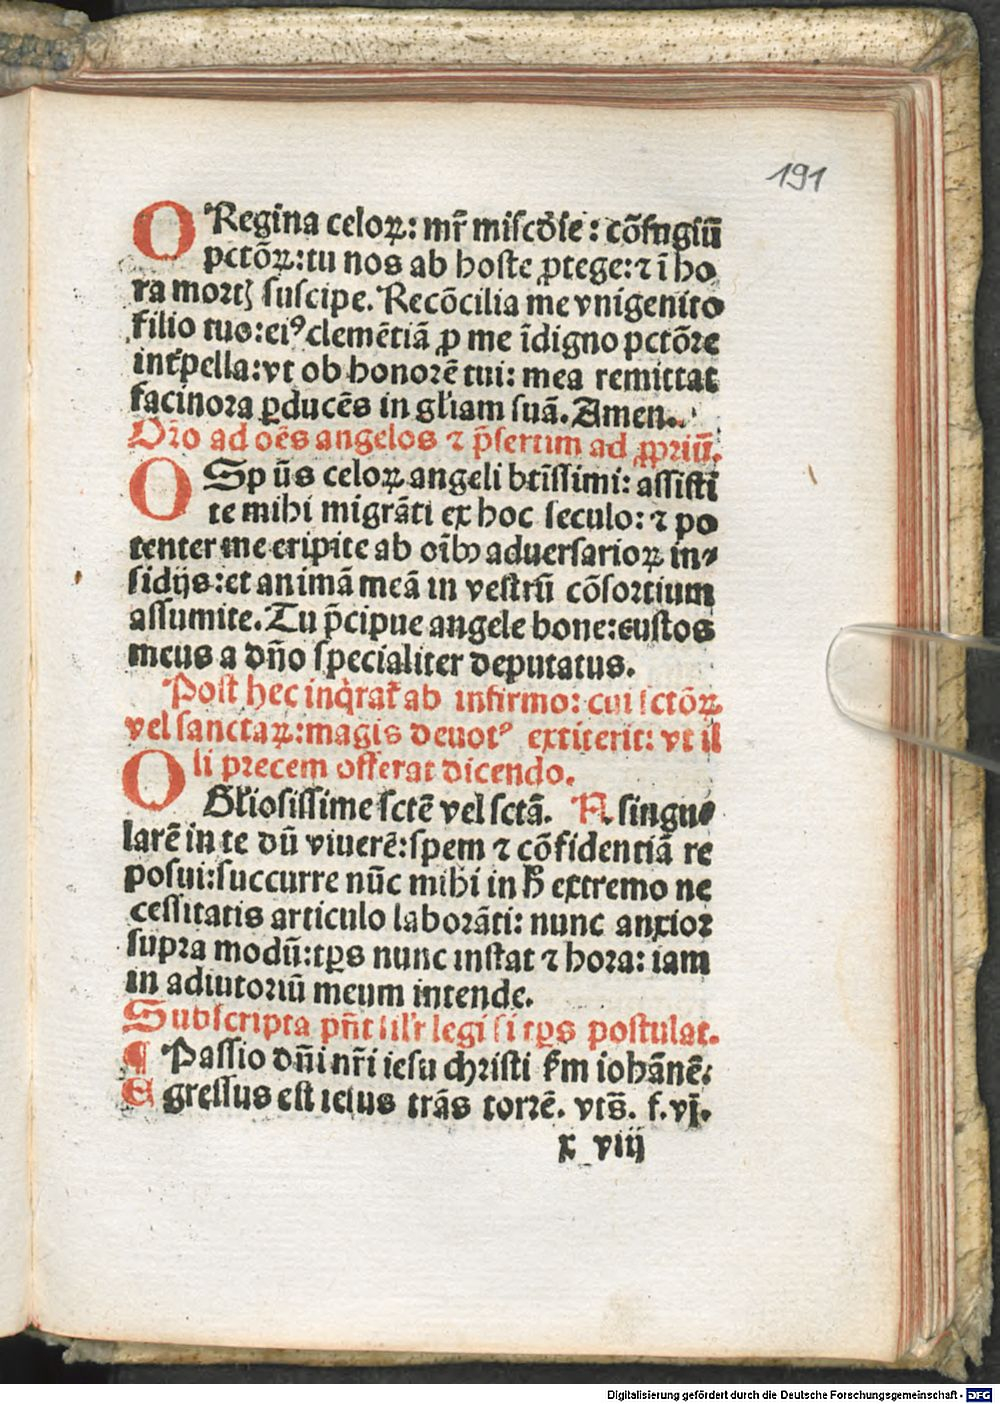 191
O Regina celoꝝ: mr̄ miſcd̓ie: cōfugiū
pctōꝝ: tu nos ab hoſte ꝓtege: ⁊ ī ho
ra mortꝭ ſuſcipe. Recōcilia me vnigenito
filio tuo: eiꝰ clemētiā ꝓ me īdigno pctōre
int̓pella: vt ob honorē tui: mea remittat
facinora ꝑducēs in gl̓iam ſuā. Amen.
Or̄o ad oēs angelos ⁊ p̄ſertim ad ꝓpriū.
O Sp ūs celoꝝ angeli btīſſimi: aſſiſti
te mihi migrāti ex hoc ſeculo: ⁊ po
tenter me eripite ab oībꝰ aduerſarioꝝ in⸗
ſidijs: et animā meā in veſtrū cōſortium
aſſumite. Tu p̄cipue angele bone: cuſtos
meus a dn̄o ſpecialiter deputatus.
Poſt hec inq̇rat̓ ab infirmo: cui ſctōꝝ
vel ſanctaꝝ: magis deuotꝰ extiterit: vt il
li precem offerat dicendo.
O Gl̓ioſiſſime ſctē vel ſctā. N. ſingu⸗
larē in te dū viuerē: ſpem ⁊ cōfidentiā re
poſui: ſuccurre nūc mihi in h̄ extremo ne
ceſſitatis articulo laborāti: nunc anxior
ſupra modū: tꝑs nunc inſtat ⁊ hora: iam
in adiutoriū meum intende.
Subſcripta pn̄t ſil̓r legi ſi tꝑs poſtulat.
¶ Paſſio dn̄i nr̄i ieſu chriſti ẜm iohānē:
Egreſſus eſt ieſus trās torrē. vts̄. f. vj.
x viij
Digitalisierung gefördert durch die Deutsche Forschungsgemeinschaft - DFG